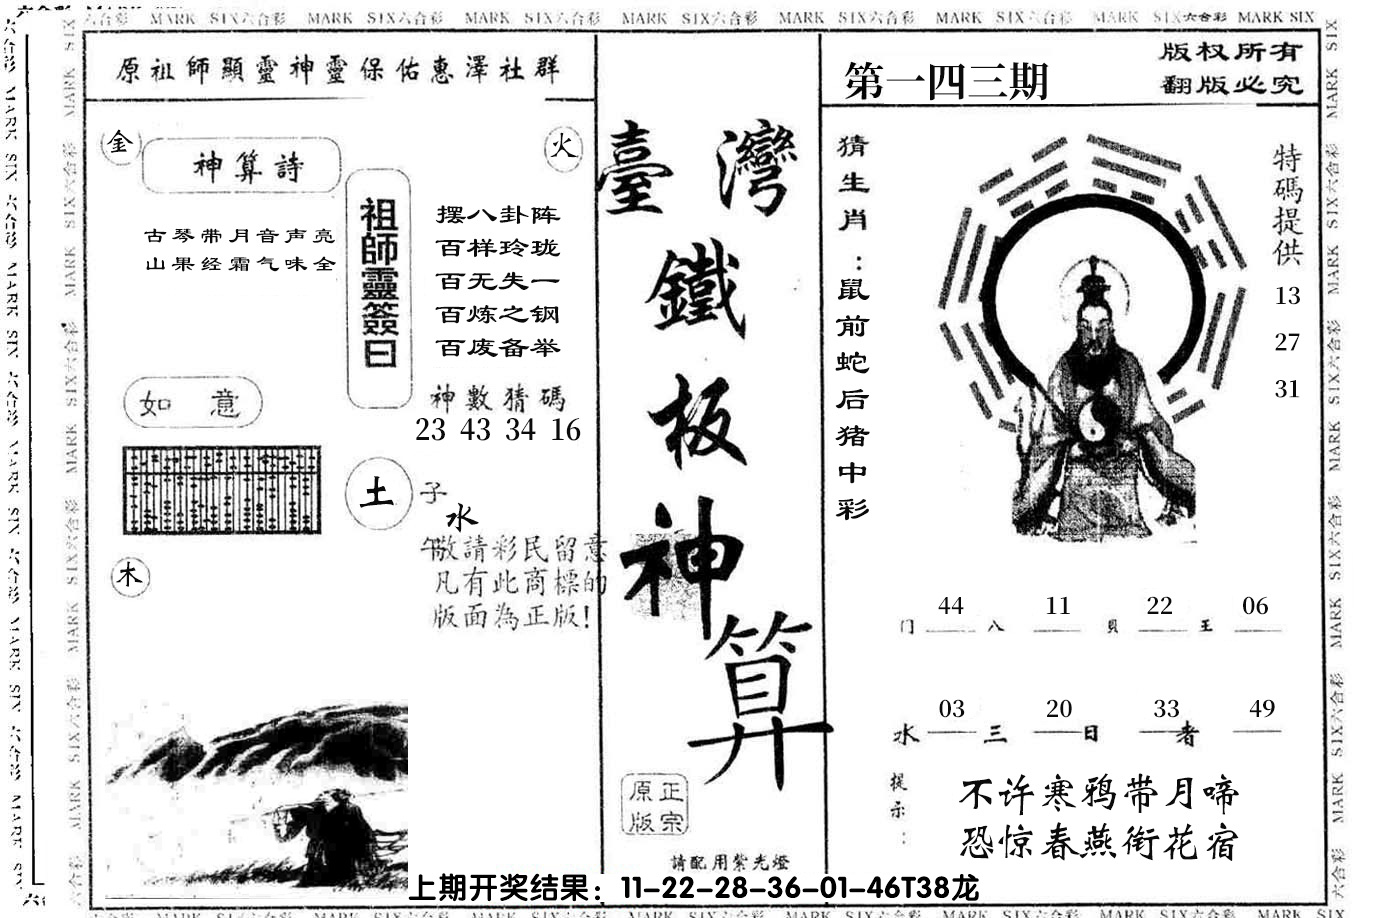 原祖師顯靈神靈保佑惠澤社群
金
神算詩
火
古琴带月音声亮
山果经霜气味全
祖師靈簽曰
摆八卦阵
百样玲珑
百无失一
百炼之钢
百废备举
神數猜碼
23 43 34 16
如意
土
子
水
午
木
敬請彩民留意
凡有此商標的
版面為正版!
臺灣
鐵
板
神
算
正宗
原版
請配用紫光燈
第一四三期
版权所有
翻版必究
猜生肖：鼠前蛇后猪中彩
特碼提供
13
27
31
44 11 22 06
门 八 貝 王
03 20 33 49
水 三 日 者
提示：
不许寒鸦带月啼
恐惊春燕衔花宿
上期开奖结果：11-22-28-36-01-46T38龙
MARK SIX六合彩